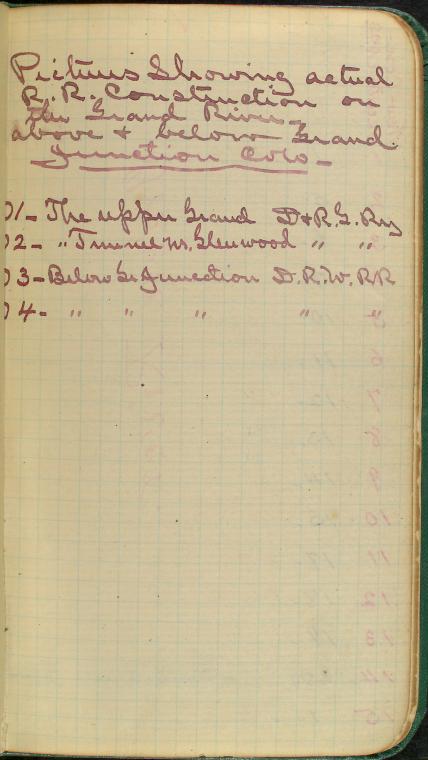 Pictures Showing actual
R.R. Construction on
the Grand River -
above + below Grand
Junction Colo -
01 - The upper Grand D+R.G. Ry
02 - " Tunnel nr. Glenwood " "
03 - Below Gr Junction D.R.W. RR
04 - " " " " "
5
6
7
8
9
10
11
12
13
14
15